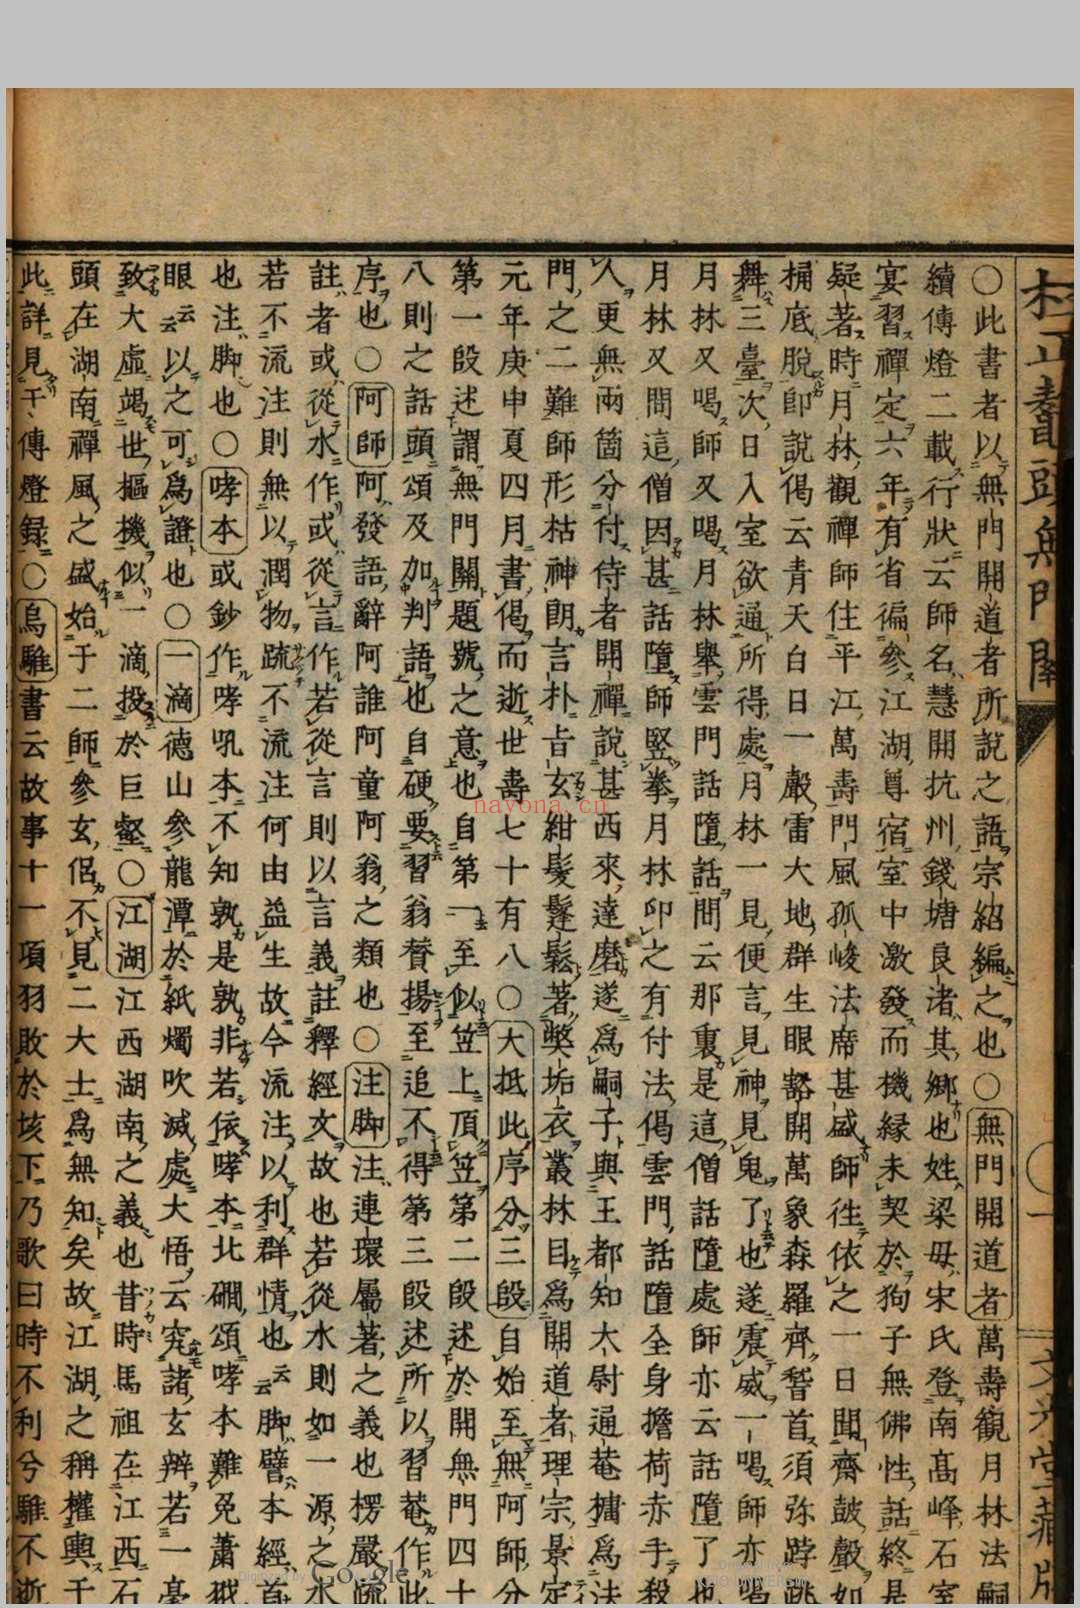 校正鼇頭無門關
一
文光堂藏版
○此書者以無門開道者所説之語宗紹編之也○無門開道者萬壽觀月林法嗣
續傳燈二載行狀云師名慧開抗州錢塘良渚其郷也姓梁母宋氏登南髙峰石室
宴習禪定六年有省徧參江湖尊宿室中激發而機縁未契於狗子無佛性話終是
疑著時月林觀禪師住平江萬壽門風孤峻法席甚盛師徃依之一日聞齋皷聲如
桶底脱即説偈云青天白日一聲雷大地群生眼豁開萬象森羅齊稽首須弥跨跳
舞三臺次日入室欲通所得處月林一見便言見神見鬼了也遂震威一喝師亦喝
月林又喝師又喝月林舉雲門話墮話問云那裏是這僧話墮處師亦云話墮了也
月林又問這僧因甚話墮師竪拳月林印之有付法偈雲門話墮全身擔荷赤手殺
人更無兩箇分付侍者開禪説甚西來達磨遂爲嗣子與王都知大尉通菴㩝爲法
門之二難師形枯神朗言朴旨玄紺髮鬔鬆著獘垢衣叢林目爲開道者理宗景定
元年庚申夏四月書偈而逝世壽七十有八○大抵此序分三段自始至無阿師分
第一段述謂無門關題號之意也自第一至似笠上頂笠第二段述於開無門四十
八則之話頭頌及加判語也自硬要習翁賛揚至追不得第三段述所以習菴作此
序也○阿師阿發語辭阿誰阿童阿翁之類也○注脚注連環屬著之義也楞嚴疏
註者或從水作或從言作若從言則以言義註釋經文故也若從水則如一源之水
若不流注則無以潤物疏不流注何由益生故今流注以利群情也云云脚譬本經首
也注脚也○哮本或鈔作哮吼本不知孰是孰非若依哮本北磵頌哮本難免蕭㹤
眼云云以之可爲證也○一滴德山參龍潭於紙燭吹滅處大悟云窮諸玄辯若一毫
致大虛竭世樞機似一滴投於巨壑○江湖江西湖南之義也昔時馬祖在江西石
頭在湖南禪風之盛始于二師參玄侶不見二大士爲無知矣故江湖之稱權輿千
此詳見于傳燈録○烏騅書云故事十一項羽敗於垓下乃歌曰時不利兮騅不逝
nayona.cn
Digitized by Google